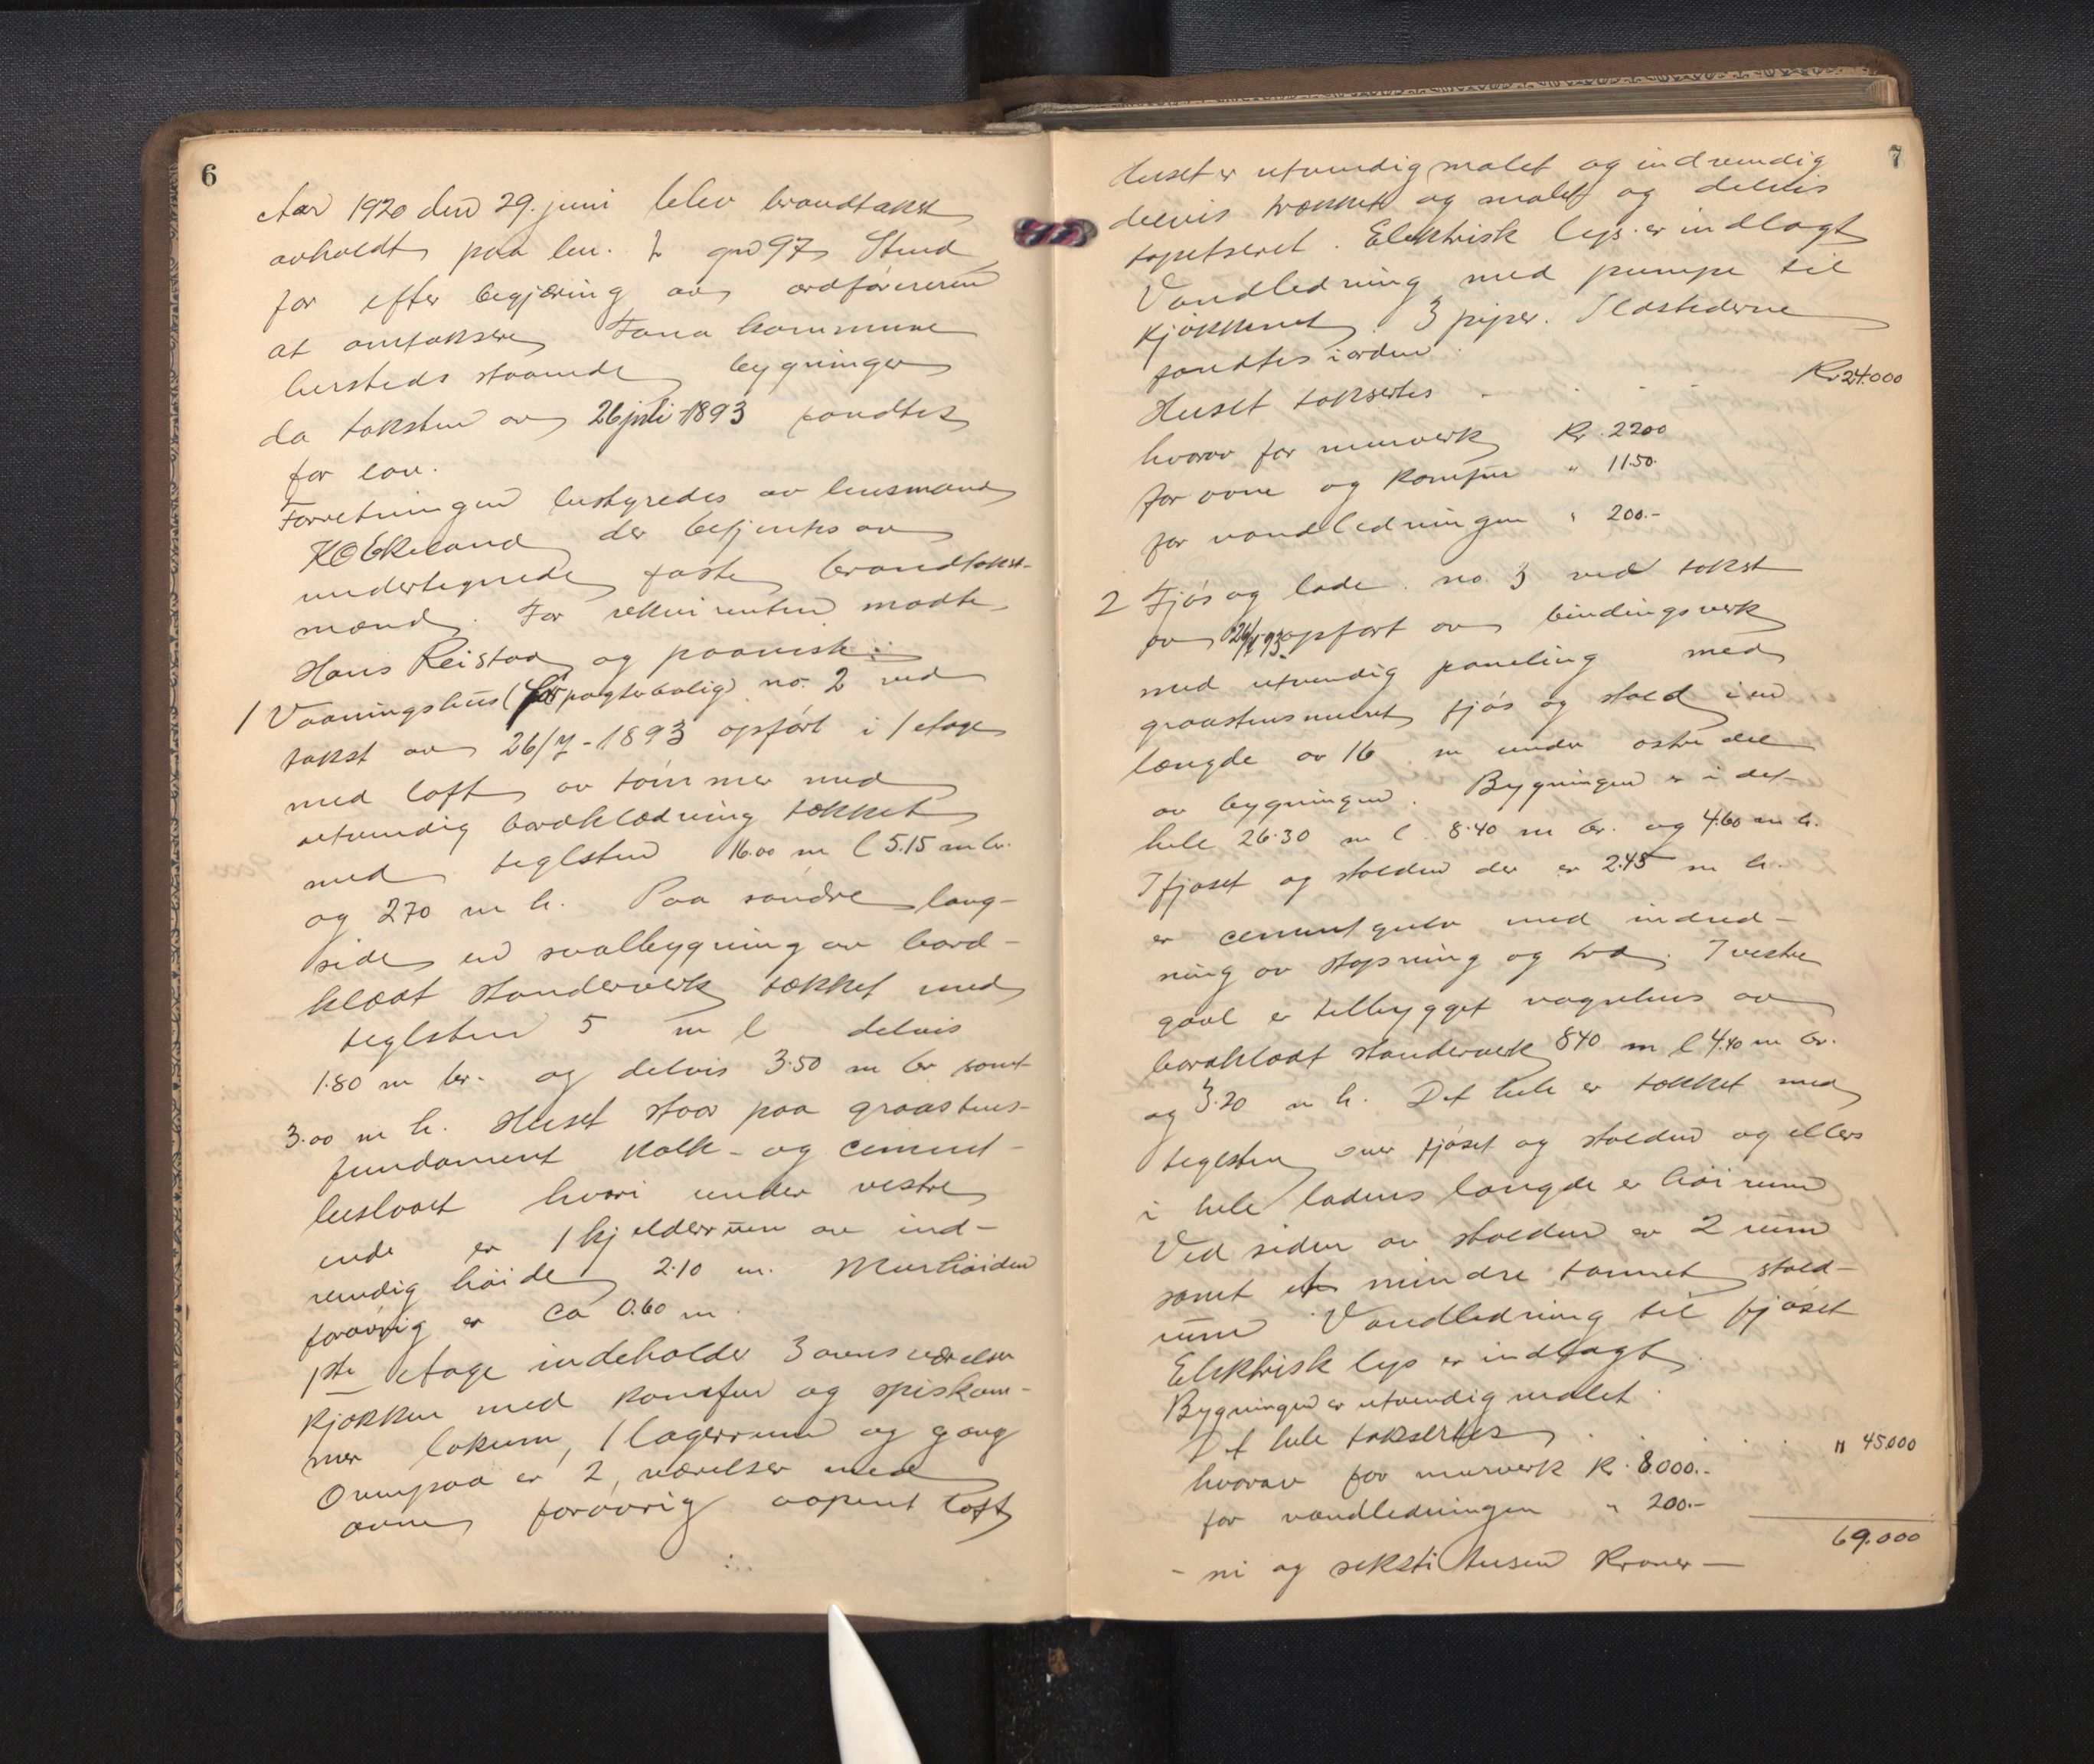 6
Aar 1920 den 29. juni blev brandtakst
avholdt paa bn. 1 gn 97 Stend
for efter begjæring av ordføreren
at omtaksere Fana kommune
hersteds staaende bygninger
da taksten av 26 juli 1893 fandtes
for lav.
Forretningen bestyredes av lensmand
K O Ekeland der betjentes av
undertegnede faste brandtakst-
mænd. For rekvirenten mødte
Hans Reistad og paaviste:
1 Vaaningshus (forpagterbolig) no. 2 ved
takst av 26/7-1893 opført i 1 etage
med loft av tømmer med
utvendig bordklædning tækket
med teglsten 16.00 m l 5.15 m br.
og 270 m h. Paa søndre lang-
side en svalbygning av bord-
klædt standerverk tækket med
teglsten 5 m l delvis
1.80 m br. og delvis 3.50 m br samt
3.00 m h. Huset staar paa graastens-
fundament kalk- og cement-
beslaaet hvori under vestre
ende er 1 kjelderrum av ind-
vendig høide 2.10 m. Murhøiden
forøvrig er ca 0.60 m.
1ste etage indeholder 3 ovnsværelser
kjøkken med komfur og spiskam-
mer lokum, 1 lagerrum og gang
Ovenpaa er 2 værelser med
ovne forøvrig aapent loft
7
Huset er utvendig malet og indvendig
delvis trækket og malet og delvis
tapetseret. Elektrisk lys er indlagt
Vandledning med pumpe til
kjøkkenet. 3 piper. Ildstederne
fandtes i orden.
Huset takseres . . . Kr 24.000
hvorav for murverk Kr. 2200
for ovne og komfur " 1150.
for vandledningen " 200.-
2 Fjøs og lade. no. 3 ved takst
av 26/7 93 opført av bindingsverk
med utvendig paneling med
graastensmuret fjøs og stald i en
længde av 16 m under østre del
av bygningen. Bygningen er i det
hele 26.30 m l. 8.40 m br. og 4.60 m h.
I fjøset og stalden der er 2.45 m h.
er cementgulv med indred-
ning av støpning og træ. I vestre
gavl er tilbygget vognhus av
bordklædt standerverk 840 m l 4.40 m br.
og 3.20 m h. Det hele er tækket med
teglsten over fjøset og stalden og ellers
i hele ladens længde er høirum
Ved siden av stalden er 2 rum
samt et mindre tømret stald-
rum Vandledning til fjøset
Elektrisk lys er indlagt.
Bygningen er utvendig malet.
Det hele takseres . . . " 45.000
hvorav for murverk Kr. 8.000.-
for vandledningen " 200.-
69.000
- ni og seksti tusen Kroner -